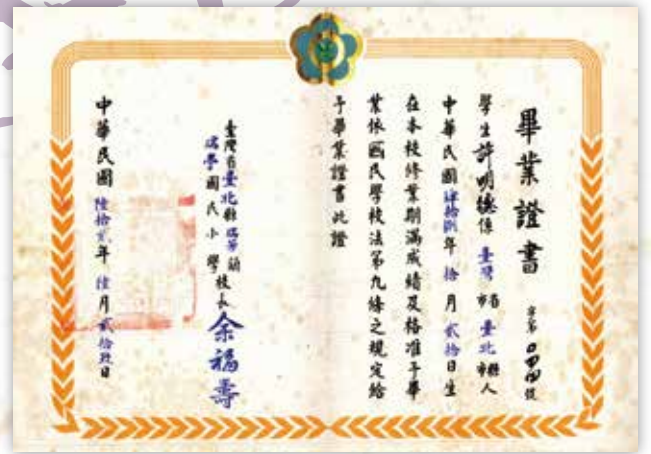 畢業證書
字第 號
學生許明德係臺灣省市臺北縣市人
中華民國肆拾年拾月貳拾日生
在本校修業期滿成績及格准予畢
業依國民學校法第九條之規定給
予畢業證書此證
臺灣省臺北縣瑞芳鎮
瑞亭國民小學校長余福壽
中華民國陸拾貳年陸月貳拾日